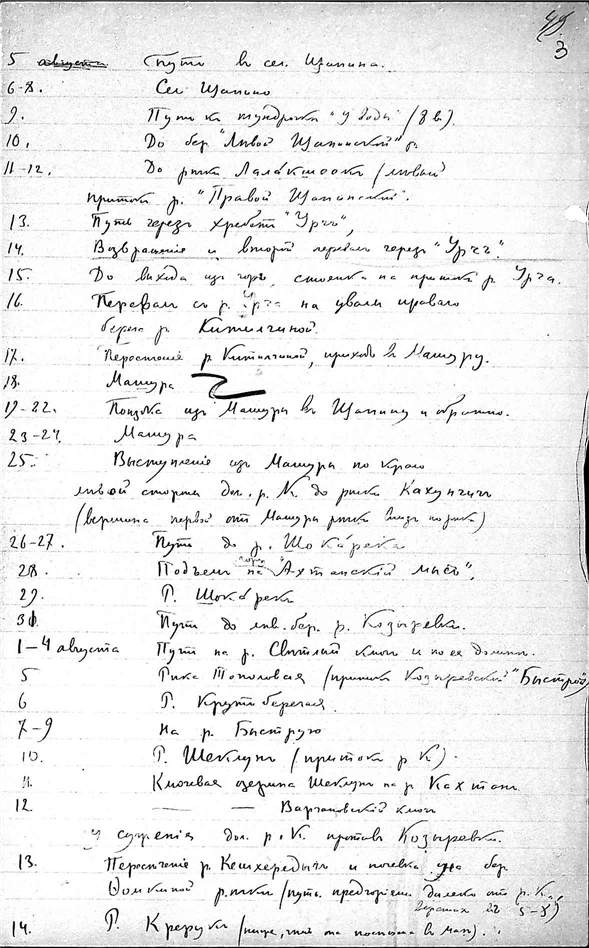 3
5 августа Путь в сел. Щапина.
6-8. Сел. Щапино
9. Путь к тундрочке "у воды" (8 в).
10. До бер. "Левой Щапинской" р.
11-12. До речки (левый
приток р. "Правой Щапинской".
13. Путь черезъ хребетъ "Урчъ",
14. Возвращение и второй перевалъ черезъ "Урчъ".
15. До выхода изъ горъ, стоянка на притоке р. Урча.
16. Перевалъ съ р. Урча на увалы праваго
берега р. Китилгиной.
17. р. Китилгиной, приходъ въ Машуру.
18. Машура
19-22. Поездка изъ Машуры въ Щапину и обратно.
23-24. Машура
25. Выступление изъ Машуры по краю
левой стороны дол. р. К. до речки
(вершина первой от Машуры речки внизъ по реке)
26-27. Путь до р. Шокарека
28. Подъемъ на "Ахтанскій мысъ",
29. Р. Шокарека
30. Путь до лев. бер. р. Козыревки.
1-4 августа Путь на р. Светлый ключ и по ея долине.
5 Река Тополовая (притокъ Козыревской "Быстрой")
6 Р. Крутоберегая
7-9 на р. Быструю
10. Р. Шеклунъ (притокъ р К).
11. Ключевая Шеклунъ на р. Кахтанъ
12 — — ключъ
у сужения дол. р. К. противъ Козыревки.
13. Пересечение р. и ночевка у бер.
речки (путь предгориемъ далеко отъ р. К.,
верстахъ въ 5-8)
14. Р. Крерукъ